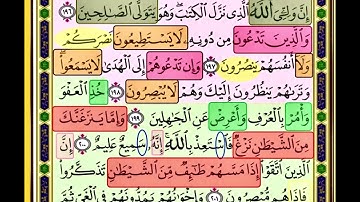 إِنَّ وَلِـِّۧيَ ٱللَّهُ ٱلَّذِي نَزَّلَ ٱلْكِتَٰبَ ۖ وَهُوَ يَتَوَلَّى ٱلصَّٰلِحِينَ ١٩٦
وَٱلَّذِينَ تَدْعُونَ مِن دُونِهِۦ لَا يَسْتَطِيعُونَ نَصْرَكُمْ
وَلَآ أَنفُسَهُمْ يَنصُرُونَ ١٩٧ وَإِن تَدْعُوهُمْ إِلَى ٱلْهُدَىٰ لَا يَسْمَعُوا۟ ۖ
وَتَرَىٰهُمْ يَنظُرُونَ إِلَيْكَ وَهُمْ لَا يُبْصِرُونَ ١٩٨ خُذِ ٱلْعَفْوَ
وَأْمُرْ بِٱلْعُرْفِ وَأَعْرِضْ عَنِ ٱلْجَٰهِلِينَ ١٩٩ وَإِمَّا يَنزَغَنَّكَ
مِنَ ٱلشَّيْطَٰنِ نَزْغٌ فَٱسْتَعِذْ بِٱللَّهِ ۚ إِنَّهُۥ سَمِيعٌ عَلِيمٌ ٢٠٠ إِنَّ
ٱلَّذِينَ ٱتَّقَوْا۟ إِذَا مَسَّهُمْ طَٰٓئِفٌ مِّنَ ٱلشَّيْطَٰنِ تَذَكَّرُوا۟
فَإِذَا هُم مُّبْصِرُونَ ٢٠١ وَإِخْوَٰنُهُمْ يَمُدُّونَهُمْ فِي ٱلْغَيِّ ثُمَّ